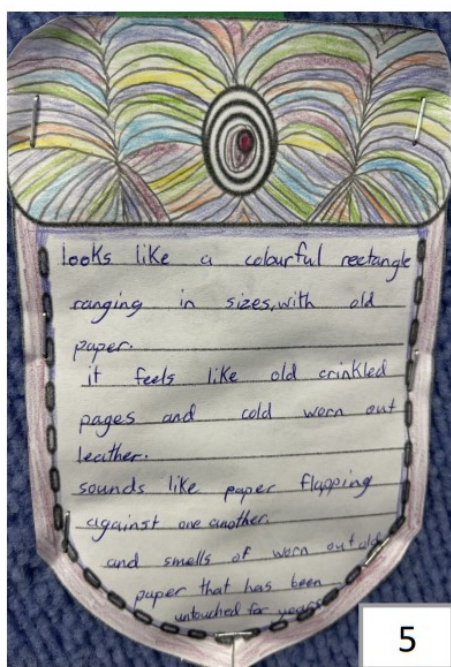 looks like a colourful rectangle
ranging in sizes, with old
paper.
it feels like old crinkled
pages and cold worn out
leather.
sounds like paper flapping
against one another.
and smells of worn out old
paper that has been
untouched for years
5